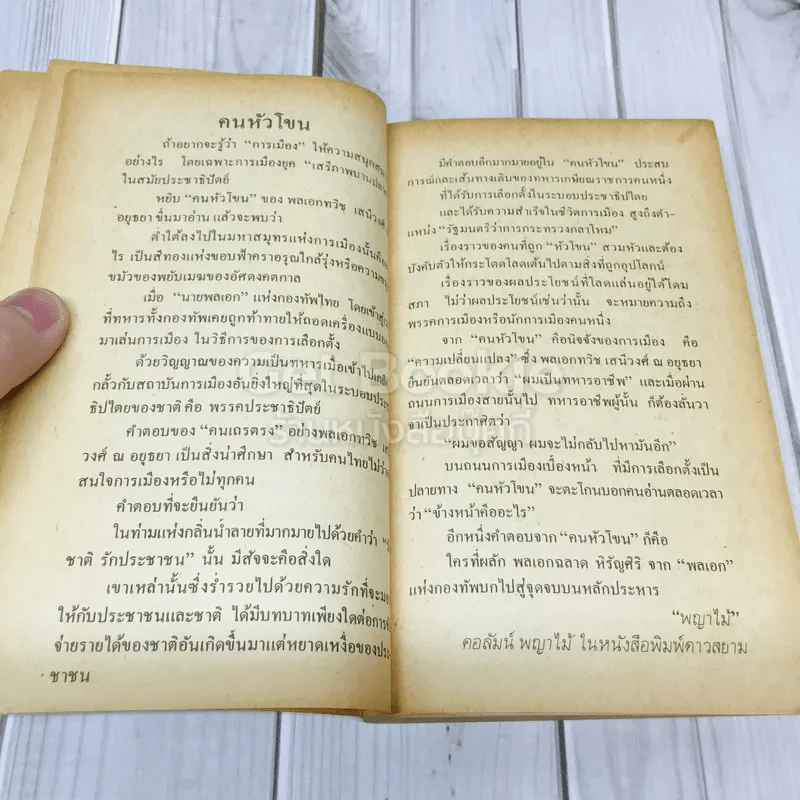 คนหัวโขน
ถ้าอยากจะรู้ว่า “การเมือง” ให้ความสนุกสนาน
อย่างไร โดยเฉพาะการเมืองยุค “เสรีภาพบานปลาย”
ในสมัยประชาธิปัตย์
หยิบ “คนหัวโขน” ของ พลเอกทวิช เสนีวงศ์ ณ
อยุธยา ขึ้นมาอ่าน แล้วจะพบว่า
ต่ำใต้ลงไปในมหาสมุทรแห่งการเมืองนั้นคือ
ไร เป็นสีทองแห่งขอบฟ้าคราอรุณใกล้รุ่งหรือความ
ขมัวของพยับเมฆของอัศดงคตกาล
เมื่อ “นายพลเอก” แห่งกองทัพไทย โดดเข้าสู่
ที่ทหารทั้งกองทัพเคยถูกท้าทายให้ถอดเครื่องแบบออก
มาเล่นการเมือง ในวิธีการของการเลือกตั้ง
ด้วยวิญญาณของความเป็นทหารเมื่อเข้าไป
กลั้วกับสถาบันการเมืองอันยิ่งใหญ่ที่สุดในระบอบประชา
ธิปไตยของชาติ คือ พรรคประชาธิปัตย์
คำตอบของ “คนเถรตรง” อย่างพลเอกทวิช เส
วงศ์ ณ อยุธยา เป็นสิ่งน่าศึกษา สำหรับคนไทยไม่ว่า
สนใจการเมืองหรือไม่ทุกคน
คำตอบที่จะยืนยันว่า
ในท่ามแห่งกลิ่นน้ำลายที่มากมายไปด้วยคำว่า
ชาติ รักประชาชน” นั้น มีสัจจะคือสิ่งใด
เขาเหล่านั้นซึ่งร่ำรวยไปด้วยความรักที่จะมอบ
ให้กับประชาชนและชาติ ได้มีบทบาทเพียงใดต่อการ
จ่ายรายได้ของชาติอันเกิดขึ้นมาแต่หยาดเหงื่อของประ
ชาชน
มีคำตอบอีกมากมายอยู่ใน “คนหัวโขน” ประสบ
การณ์และเส้นทางเดินของทหารเกษียณราชการคนหนึ่ง
ที่ได้รับการเลือกตั้งในระบอบประชาธิปไตย
และได้รับความสำเร็จในชีวิตการเมือง สูงถึงตำ-
แหน่ง “รัฐมนตรีว่าการกระทรวงกลาโหม”
เรื่องราวของคนที่ถูก “หัวโขน” สวมหัวและต้อง
บังคับตัวให้กระโดดโลดเต้นไปตามสิ่งที่ถูกอุปโลกน์
เรื่องราวของผลประโยชน์ที่โลดแล่นอยู่ใต้โดม
สภา ไม่ว่าผลประโยชน์เช่นว่านั้น จะหมายความถึง
พรรคการเมืองหรือนักการเมืองคนหนึ่ง
จาก “คนหัวโขน” คือนิจจังของการเมือง คือ
“ความเปลี่ยนแปลง” ซึ่ง พลเอกทวิช เสนีวงศ์ ณ อยุธยา
ยืนยันตลอดเวลาว่า “ผมเป็นทหารอาชีพ” และเมื่อผ่าน
ถนนการเมืองสายนั้นไป ทหารอาชีพผู้นั้น ก็ต้องลั่นวา
จาเป็นประกาศิตว่า
“ผมขอสัญญา ผมจะไม่กลับไปหามันอีก”
บนถนนการเมืองเบื้องหน้า ที่มีการเลือกตั้งเป็น
ปลายทาง “คนหัวโขน” จะตะโกนบอกคนอ่านตลอดเวลา
ว่า “ข้างหน้าคืออะไร”
อีกหนึ่งคำตอบจาก “คนหัวโขน” ก็คือ
ใครที่ผลัก พลเอกฉลาด หิรัญศิริ จาก “พลเอก”
แห่งกองทัพบกไปสู่จุดจบบนหลักประหาร
“พญาไม้”
คอลัมน์ พญาไม้ ในหนังสือพิมพ์ดาวสยาม